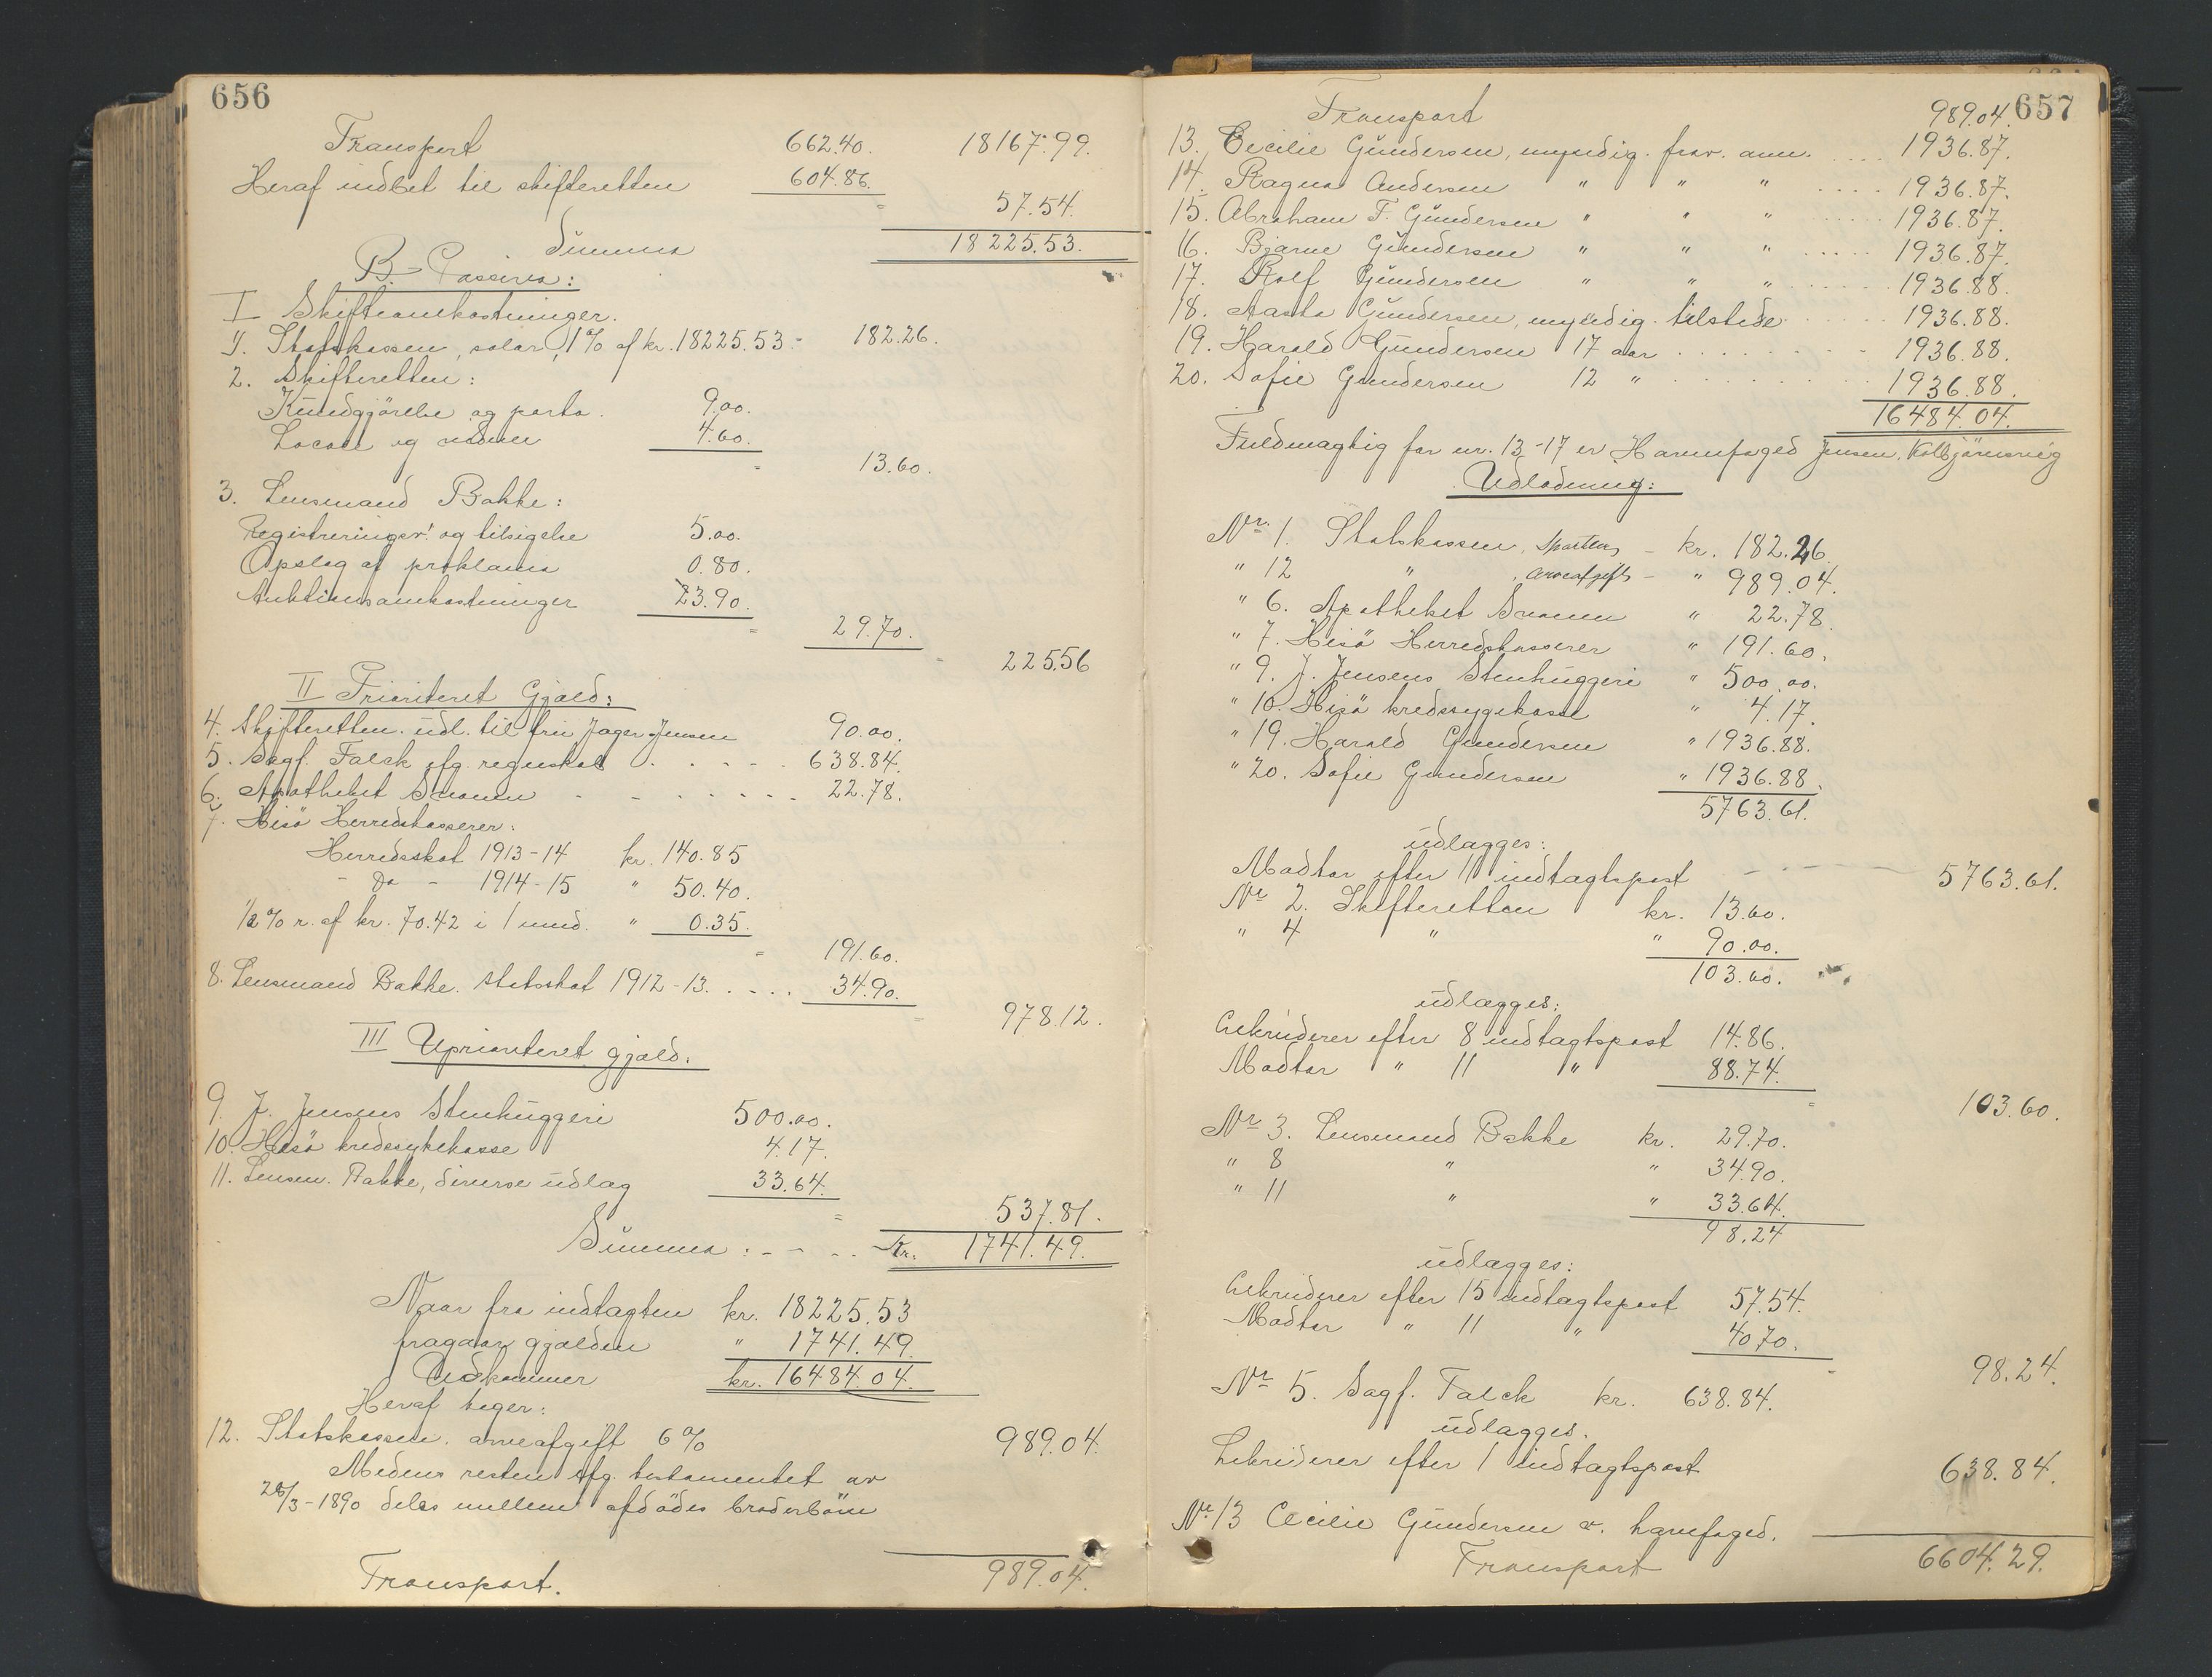 656
Transport 662.40. 18167.99.
Heraf indbet til skifteretten 604.86.
= 57.54.
Summa 18225.53.
B. Passiva:
I Skifteomkostninger.
1. Statskassen, salær, 1% af kr. 18225.53 = 182.26.
2. Skifteretten:
Kundgjörelse og porto. 9.00.
Locale og vidner 4.60.
= 13.60.
3. Lensmand Bakke:
Registreringsv! og tilsigelse 5.00.
Opslag af proklama 0.80.
Auktionsomkostninger 23.90.
= 29.70.
= 225.56
II Prioriteret Gjæld:
4. Skifteretten. udl. til fru Jager-Jensen 90.00.
5. Sagf. Falck ifg. regnskab . . . . . 638.84.
6. Apotheket Svanen - - - - - - - 22.78.
7. Hisö Herredskasserer:
Herredsskat 1913-14 kr. 140.85
- Do - 1914-15 " 50.40.
1/2% r. af kr. 70.42 i 1 mnd. " 0.35.
= 191.60.
8. Lensmand Bakke. statsskat 1912-13. . . . . 34.90.
= 978.12.
III Uprioriteret gjæld.
9. J. Jensens Stenhuggeri 500.00.
10. Hisö kredssykekasse 4.17.
11. Lensm. Bakke, diverse udlæg 33.64.
= 537.81.
Summa : - - . . Kr. 1741.49.
Naar fra indtægten kr. 18225.53
fragaar gjælden " 1741.49.
Udkommer kr. 16484.04.
Heraf tager:
12. Statskassen. arveafgift 6% 989.04.
Medens resten ifg. testamentet av
28/3-1890 deles mellem afdödes broderbörn
Transport. 989.04.
657
Transport 989.04.
13. Cecilie Gundersen, myndig. frav. anm. . . . . 1936.87.
14. Ragna Andersen " " " . . . . 1936.87.
15. Abraham F. Gundersen " " " . . . . 1936.87.
16. Bjarne Gundersen " " " . . . . . 1936.87.
17. Rolf Gundersen " " " . . . . . . 1936.88.
18. Aasta Gundersen, myndig. tilstede . . . . . 1936.88.
19. Harald Gundersen 17 aar . . . . . . . 1936.88.
20. Sofie Gundersen 12 " . . . . . . . . 1936.88.
16484.04.
Fuldmægtig for nr. 13-17 er Havnefoged Jensen, Kolbjörnsvig
Udlodning:
Nr. 1. Statskassen, sportler - kr. 182.26
" 12 " , arveafgift - " 989.04.
" 6. Apotheket Svanen " 22.78.
" 7. Hisö Herredskasserer " 191.60.
" 9. J. Jensens Stenhuggeri " 500.00.
" 10. Hisö kredssygekasse " 4.17.
" 19. Harald Gundersen " 1936.88.
" 20. Sofie Gundersen " 1936.88.
5763.61.
udlægges:
Modtar efter 11 indtægtspost - - - 5763.61.
Nr 2. Skifteretten kr. 13.60.
" 4 " " 90.00.
103.60.
udlægges:
Likviderer efter 8 indtægtspost 14.86.
Modtar " 11 " 88.74.
= 103.60.
Nr 3. Lensmand Bakke kr. 29.70.
" 8 " " 34.90.
" 11 " " 33.64.
98.24
udlægges:
Likviderer efter 15 indtægtspost 57.54.
Modtar " 11 " 40.70.
= 98.24.
Nr 5. Sagf. Falck kr. 638.84.
udlægges.
Likviderer efter 1 indtægtspost 638.84.
Nr 13 Cecilie Gundersen v. havnefoged.
Transport 6604.29.